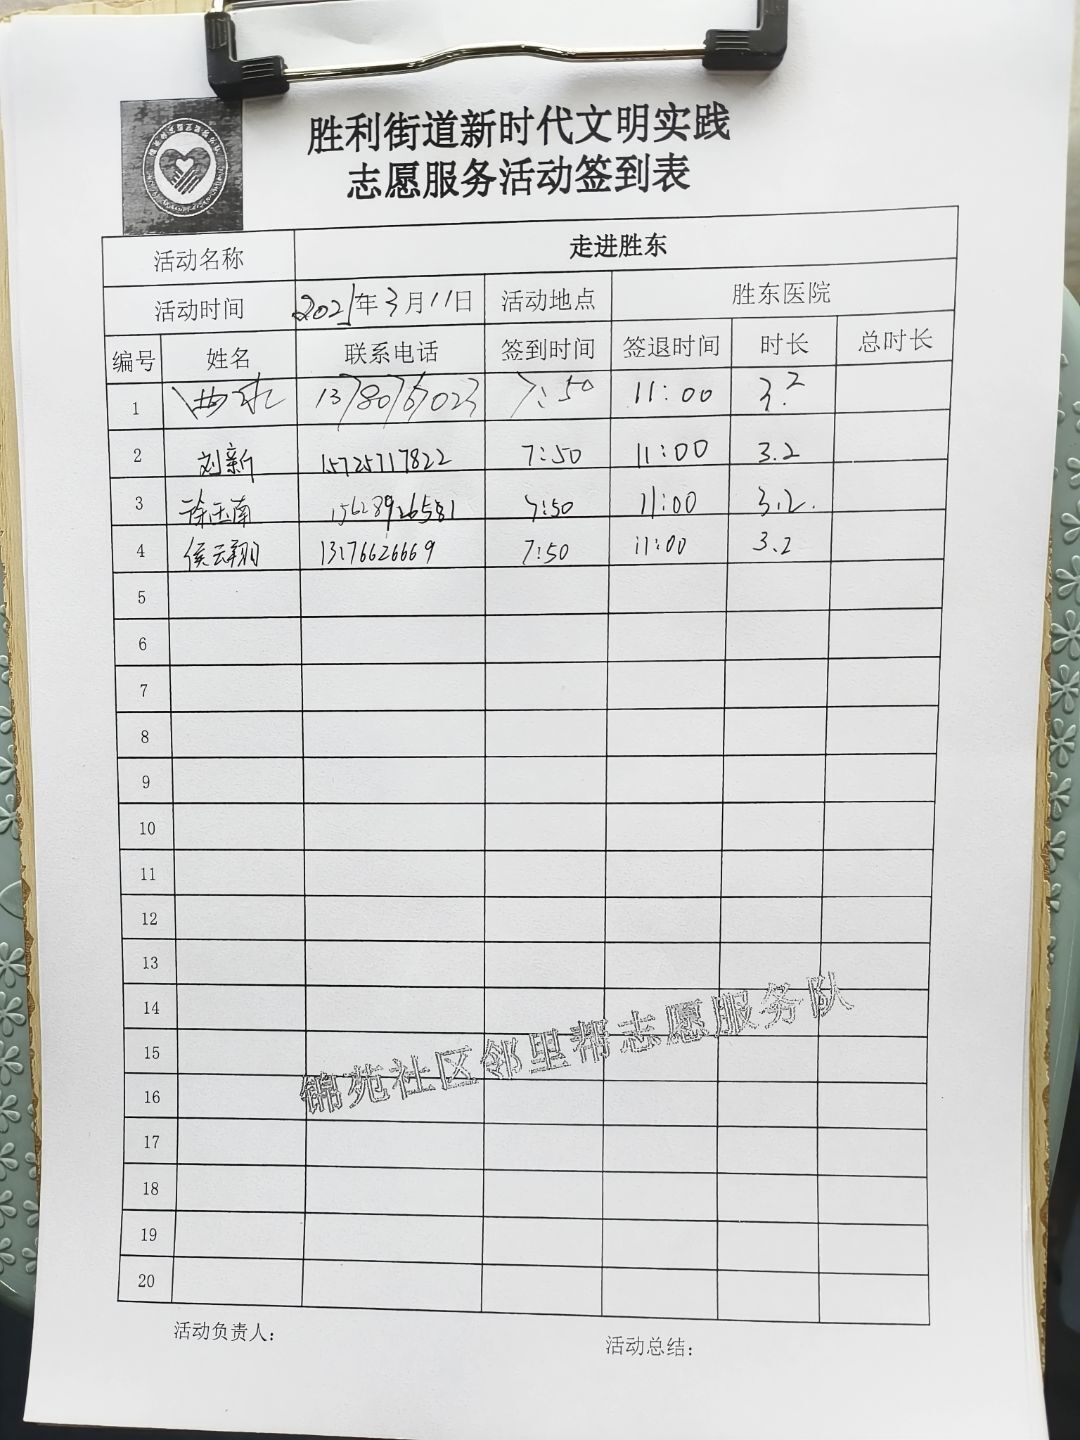 胜利街道新时代文明实践
志愿服务活动签到表
活动名称 走进胜东
活动时间 2021年3月11日 活动地点 胜东医院
编号 姓名 联系电话 签到时间 签退时间 时长 总时长
1 7:50 11:00 3.2
2 刘新 15725717822 7:50 11:00 3.2
3 徐玉南 15628926581 7:50 11:00 3.2.
4 侯云翔 13176626669 7:50 11:00 3.2
5
6
7
8
9
10
11
12
13
14
15
16
17
18
19
20
锦苑社区邻里帮志愿服务队
活动负责人：
活动总结：